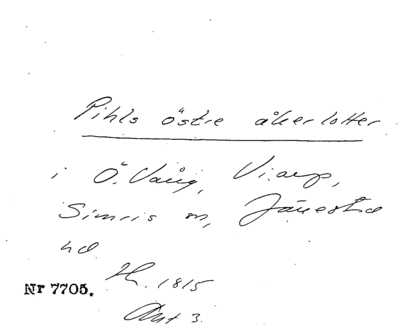 Pihls östre åkerlotter
i Ö. Vång, Viarp,
Simris sn, Järrestad
hd
H. 1815
Akt 3.
Nr 7705.